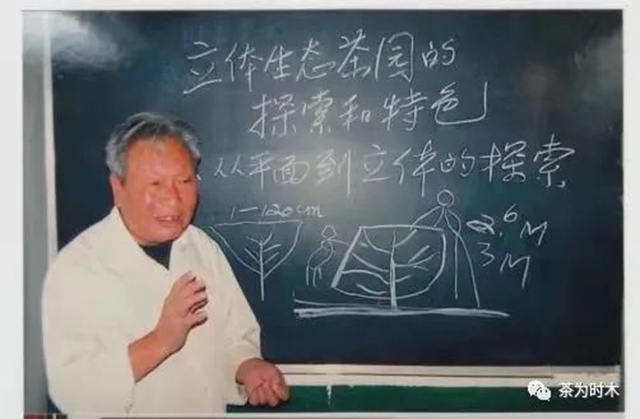 立体生态茶园的
探索和特色
从平面到立体的探索
1—120cm
2.6M
3M
茶为时木